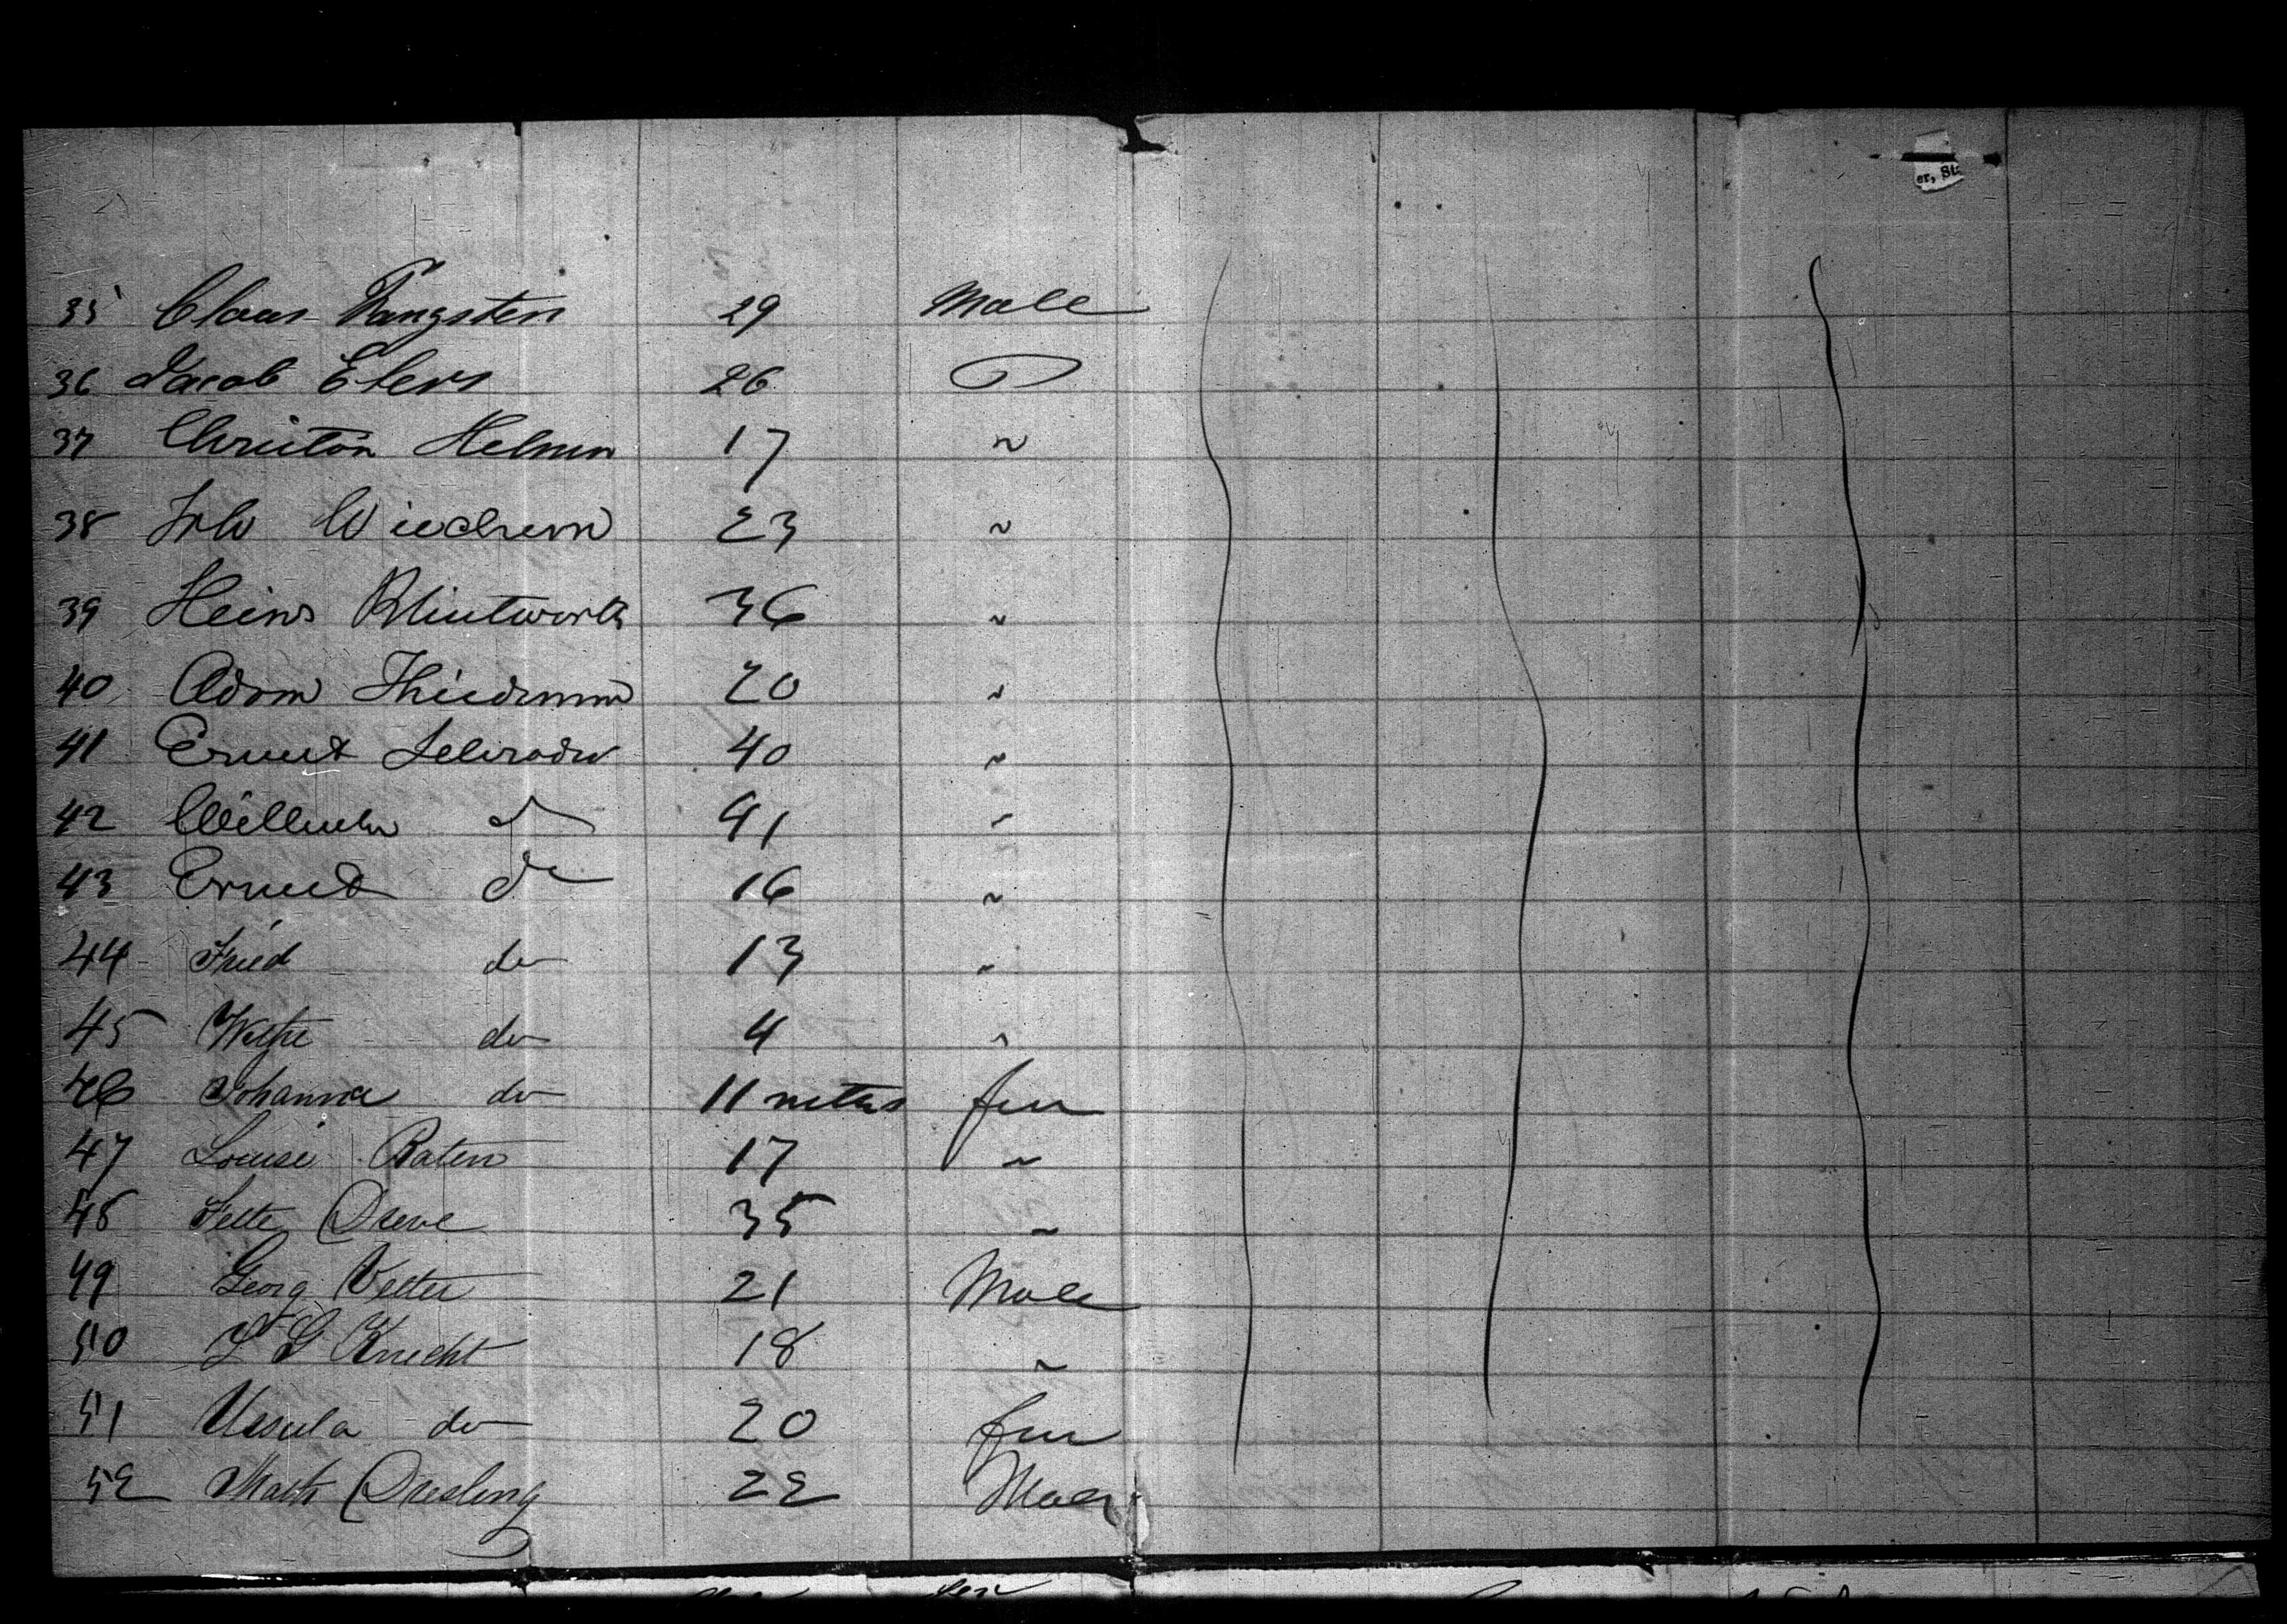 er, St
35 Claus Tangsten 29 Male
36 Jacob Ehlers 26
37 Christon Helmen 17 "
38 Joh Wiechern 23 "
39 Heins Klintworth 36 "
40 Adom Thiedmm 20 "
41 Ernest Schroder 40 "
42 Willhelm do 41 "
43 Ernest do 16 "
44 Fried do 13 "
45 do 4 "
46 Johanna do 11 mths fem
47 Louise Raten 17 "
48 Jette Dreve 35 "
49 Georg Vetter 21 Male
50 Knecht 18 "
51 Ursula do 20 fem
52 Math Dresling 22 Male